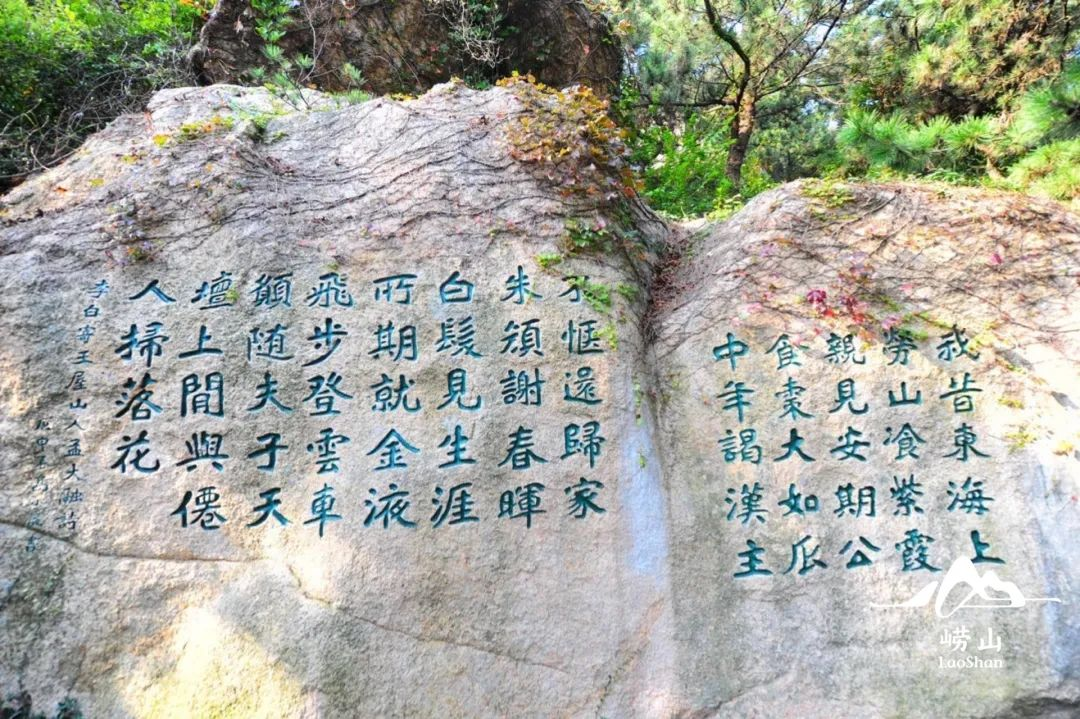 我昔東海上
勞山飡紫霞
親見安期公
食棗大如瓜
中年謁漢主
不惬還歸家
朱顔謝春暉
白髮見生涯
所期就金液
飛步登雲車
願随夫子天
壇上閒與僊
人掃落花
李白寄王屋山人孟大融詩
崂山
LaoShan